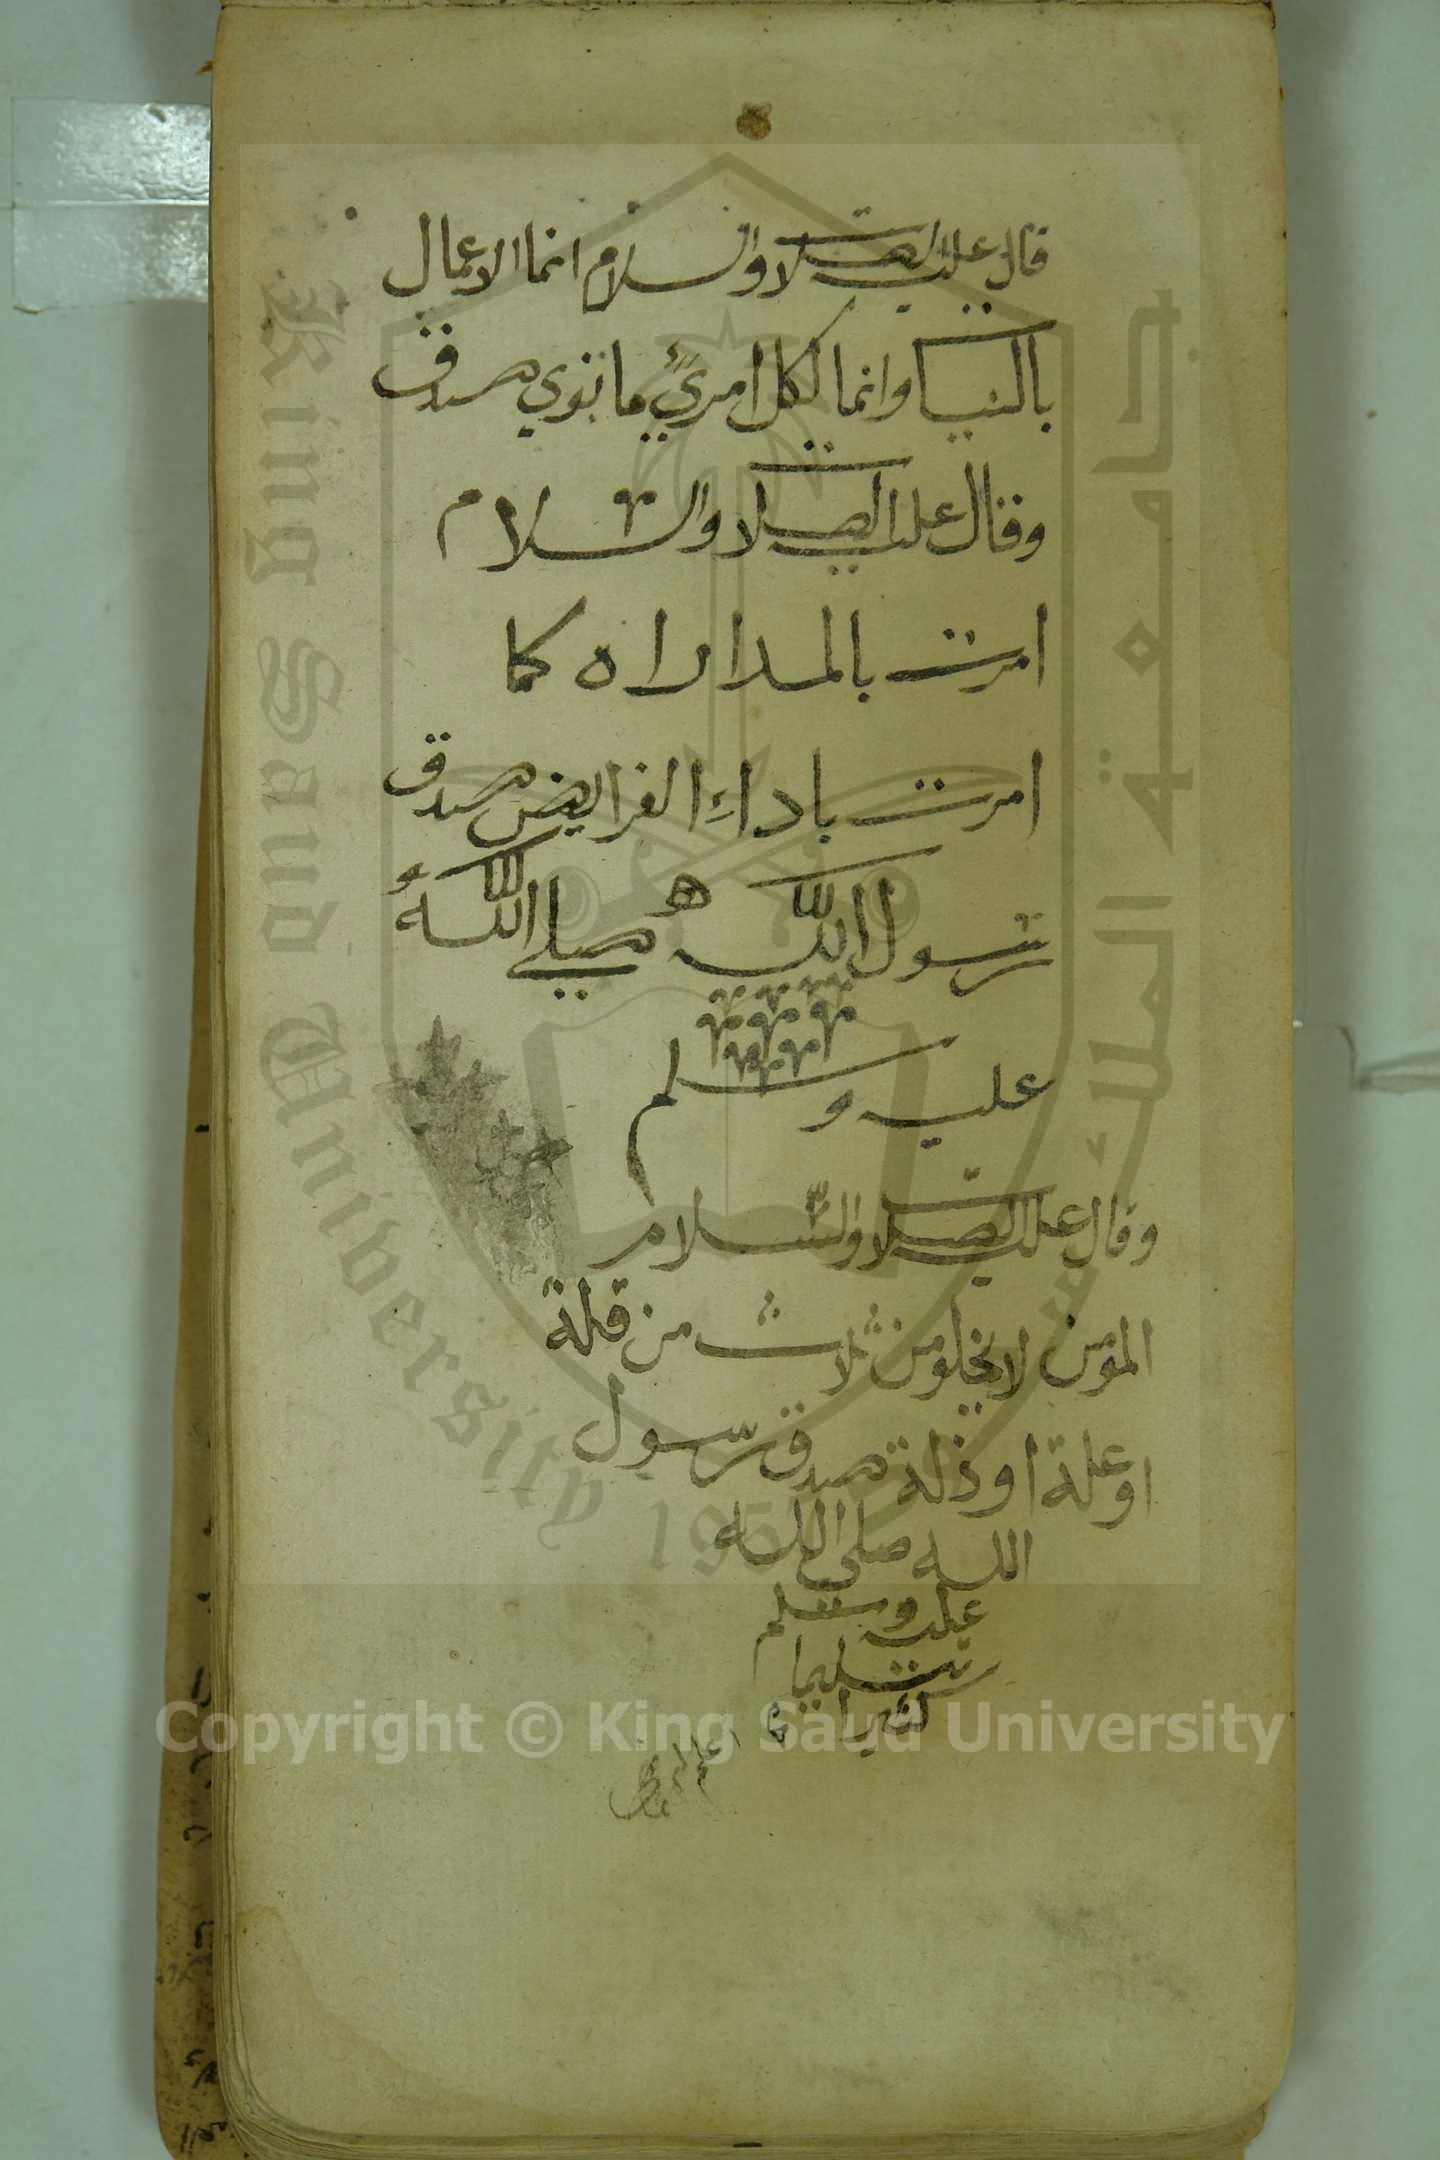 قال عليه الصلاة والسلام انما الاعمال
بالنيات وانما لكل امرئ ما نوي صدق
وقال عليه الصلاة والسلام
امرت بالمداراه كما
امرت باداء الفرايض صدق
رسول الله صلي الله
عليه وسلم
وقال عليه الصلاة والسلام
المؤمن لا يخلو من ثلاث من قلة
او علة او ذلة صدق رسول
الله صلى الله
عليه وسلم
تسليما
كثيرا
King Saud University 1957
جامعة الملك سعود
Copyright © King Saud University